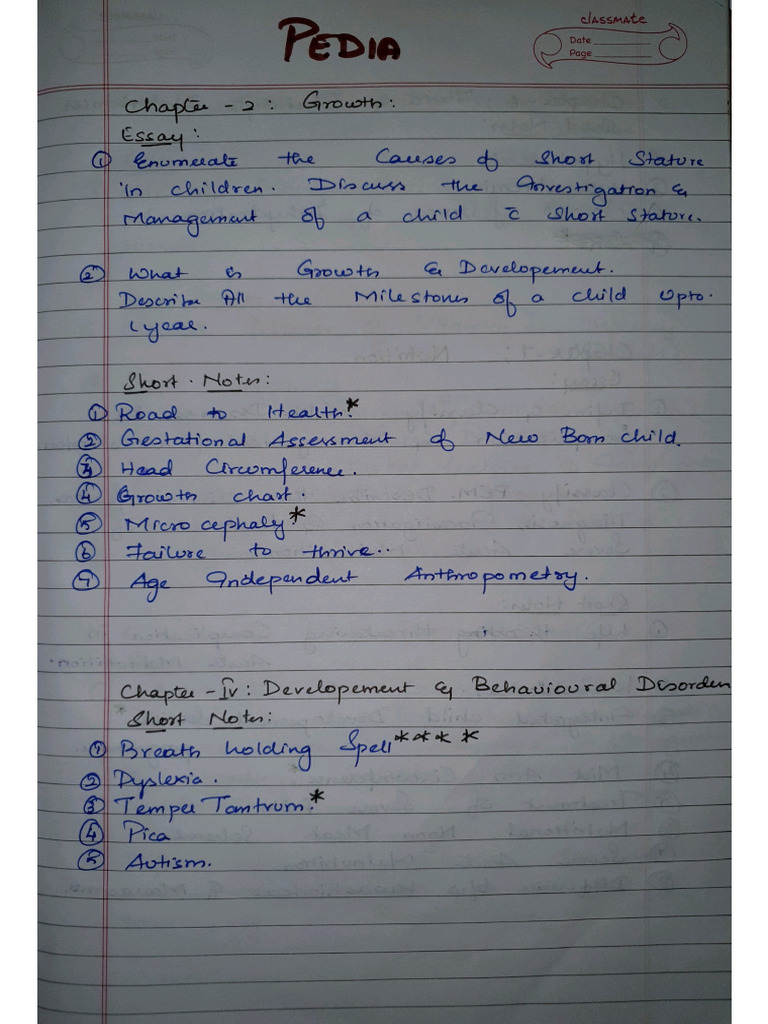 classmate
PEDIA
Date
Page
Chapter - 2 : Growth :
Essay :
① Enumerate the Causes of Short Stature
in children. Discuss the Investigation &
Management of a child c̄ Short Stature.
② What is Growth & Developement.
Describe All the Milestones of a child Upto.
1 year.
Short Notes :
① Road to Health.*
② Gestational Assessment of New Born child.
③ Head Circumference.
④ Growth chart.
⑤ Microcephaly.*
⑥ Failure to thrive..
⑦ Age Independent Anthropometry.
Chapter - IV : Developement & Behavioural Disorders
Short Notes :
① Breath holding Spell****
② Dyslexia.
③ Temper Tantrum.*
④ Pica
⑤ Autism.